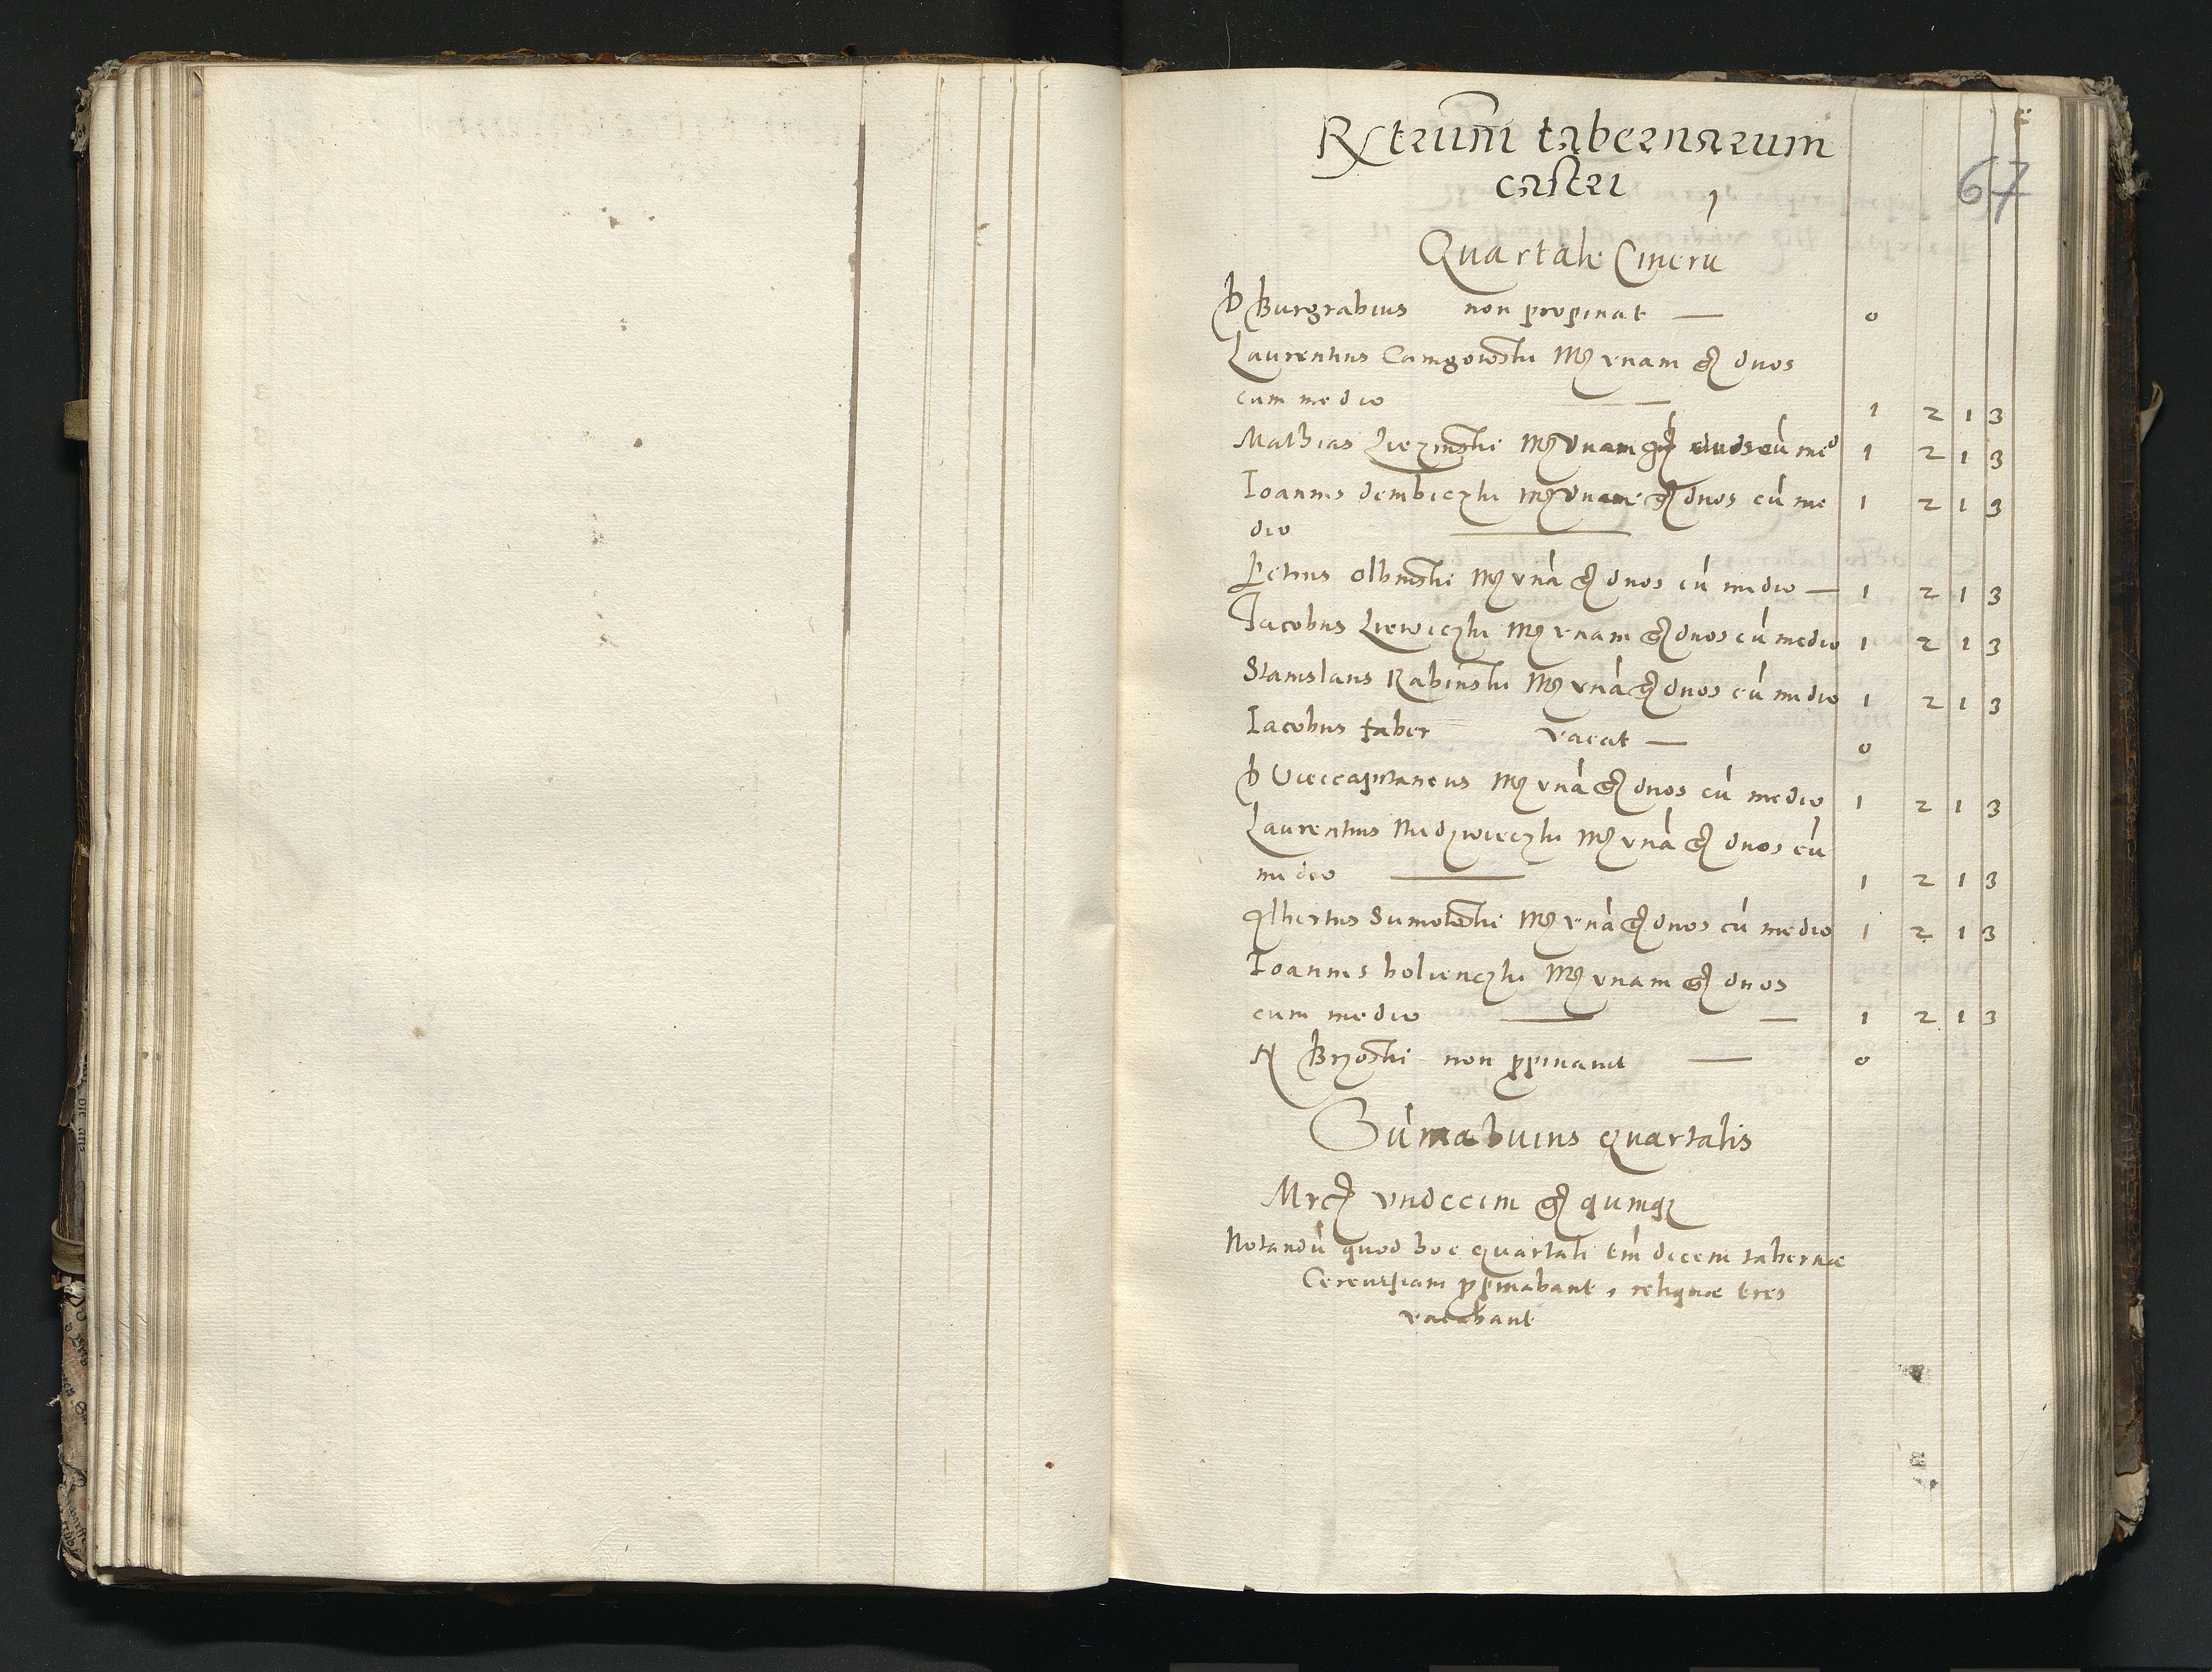 67
Rxtrum tabernarum
castri
Quartale Cineru
D Burgrabius non propinat — 0
Laurentius Mrc vnam gr duos
cum medio — 1 2 1 3
Mathias Mrc vnam gr duos cu med 1 2 1 3
Ioannes dembiczki Mrc vnam gr duos cu me 1 2 1 3
dio —
Petrus olbinski Mrc vna gr duos cu medio — 1 2 1 3
Iacobus Lewiczki Mrc vnam gr duos cu medio 1 2 1 3
Stanislaus Rabinski Mrc vna gr duos cu medio 1 2 1 3
Iacobus faber vacat — 0
D Vicecapitaneus Mrc vna gr duos cu medio 1 2 1 3
Laurentius Niedzwieczki Mrc vna gr duos cu
medio — 1 2 1 3
Albertus Mrc vna gr duos cu medio 1 2 1 3
Ioannes bolienczki Mrc vnam gr duos
cum medio — — 1 2 1 3
N Brzoski non ppinauit — 0
Suma huius quartalis
Mrc vndecim gr quinq
Notandu quod hoc quartali tm decem tabernæ
Cereuisiam ppinabant, reliquæ tres
vacabant